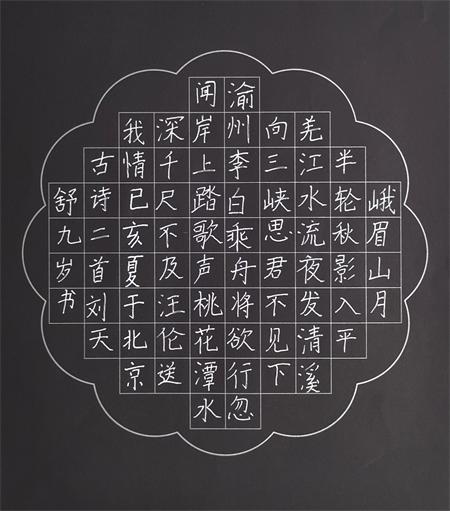 峨眉山月
半轮秋影入平
羌江水流夜发清溪
向三峡思君不见下
渝州李白乘舟将欲行忽
闻岸上踏歌声桃花潭水
深千尺不及汪伦送
我情已亥夏于北京
古诗二首刘天
舒九岁书